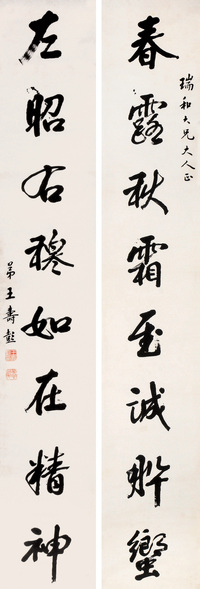 瑞和大兄大人正
春露秋霜至誠肸蠁
左昭右穆如在精神
弟王壽彭